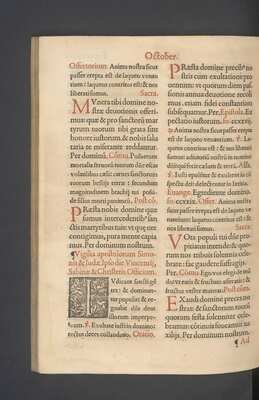 October.
Offertorium. Anima nostra sicut
passer erepta est de laqueo venan
tium: laqueus contritus est: & nos
liberati sumus. Sacra.
MVnera tibi domine no-
stræ deuotionis offeri
mus: quæ & pro sanctorũ mar
tyrum tuorum tibi grata sint
honore iustorum, & nobis saluta
ria te miserante reddantur.
Per dominũ. Cõmu. Posuerunt
mortalia
seruorum tuorum escas
volatilibus cæli: carnes sanctorum
tuorum bestiis terræ: secundum
magnitudinem brachij tui posside
filios morte punitorũ. Post cõ.
PRæsta nobis domine quæ
sumus intercedentibus san
ctis martyribus tuis: vt quæ ore
contigimus, pura mente capia
mus. Per dominum nostrum.
¶ Vigilia apostolorum Simo-
nis & Iudæ
Officium.
IVdicant sancti gẽ
tes: & dominan-
tur populis: & re-
gnabit dñs deus
illorum imperpe-
tuum. Ps. Exultate iusti in domino:
rectos decet collaudatio. Oratio.
PRæsta domine
stris cum exultatione pro
uenum: vt quorum diem passi-
onis annua deuotione recoli
mus, etiam fidei constantiam
subsequamur. Per. Epistola. Ex
pectatio iustorum.
Anima nostra sicut passer erepta
est de laqueo venantium. V. La-
queus contritus est: & nos liberati
sumus: adiutorium nostrũ in nomine
domini
qui fecit cælum & terrã. Alla.
Euang.
Anima nostra
sicut passer erepta est de laqueo ve
nantium: laqueus contritus est: &
nos liberati sumus. Sacra.
VOta populi tui dñe pro-
pitiatus intende: & quo-
rum nos tribuis solennia cele-
brare: fac gaudere suffragijs.
Per. Cõmu. Ego vos elegi de mũ
do: vt eatis & fructum afferatis: &
fructus vester maneat. Post cõ.
EXaudi domine preces no
stras: & sanctorum tuorũ
quorum festa solenniter cele-
bramus: continuis foueamur au
xilijs. Per dominum nostrum.
¶ Ad